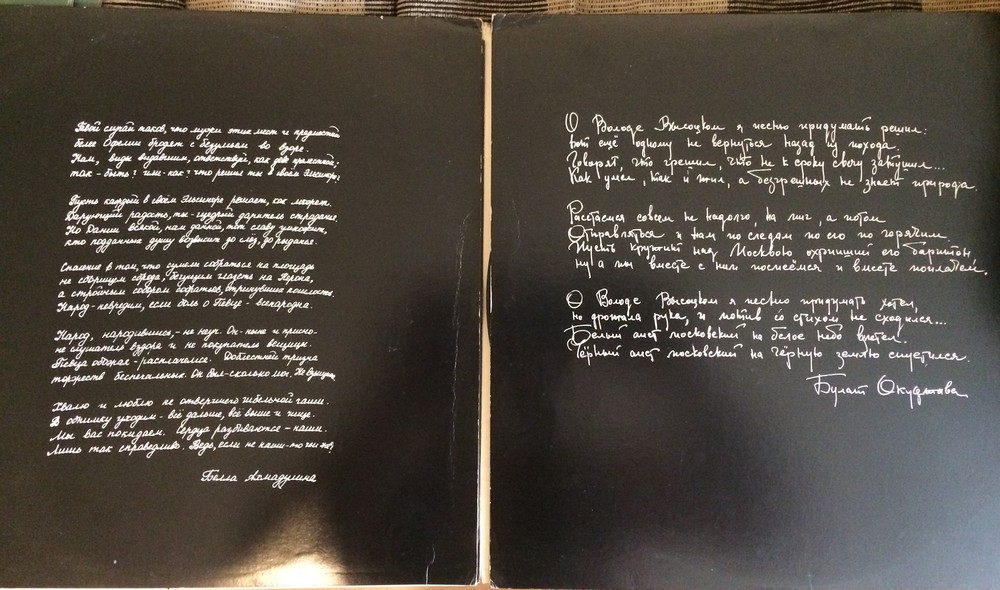 Твой случай таков, что мужи этих мест и предместий
белее Офелии бродят с безумьем во взоре.
Нам, виды видавшим, ответствуй, как деве прелестной:
так - быть? или - как? что решил ты в своём Эльсиноре?
Пусть каждый в своём Эльсиноре решает, как может.
Дарующий радость, ты - щедрый даритель страданья.
Но Дании всякой, нам данной, тот славу умножит,
кто подданных душу возвысит до слёз, до рыданья.
Спасение в том, что сумели собраться на площадь
не сборищем сброда, бегущим глазеть на Нерона,
а стройным собором собратьев, отринувших пошлость.
Народ - невредим, если боль о Певце - всенародна.
Народ, народившись, - не неуч. Он - ныне и присно -
не слушатель вздора и не покупатель вещицы.
Певца обожая - расплачемся. Доблестна тризна
торжеств беспечальных. Он был - сколько мог. Не взыщите.
Хвалю и люблю не отвергшего гибельной чаши.
В обнимку уходим - всё дальше, всё выше и чище.
Мы вас покидаем. Сердца разбиваются - наши.
Лишь так справедливо. Ведь, если не наши - то чьи же?
Белла Ахмадулина
О Володе Высоцком я песню придумать решил:
вот ещё одному не вернуться назад из похода.
Говорят, что грешил, что не к сроку свечу затушил...
Как умел, так и жил, а безгрешных не знает природа.
Расстаёмся совсем не надолго, на миг, а потом
Отправляться и нам по следам по его по горячим
Пусть кружит над Москвою охрипший его баритон
ну а мы вместе с ним посмеёмся и вместе поплачем.
О Володе Высоцком я песню придумать хотел,
но дрожала рука, и мотив со стихом не сходился...
Белый аист московский на белое небо взлетел.
Чёрный аист московский на чёрную землю спустился.
Булат Окуджава